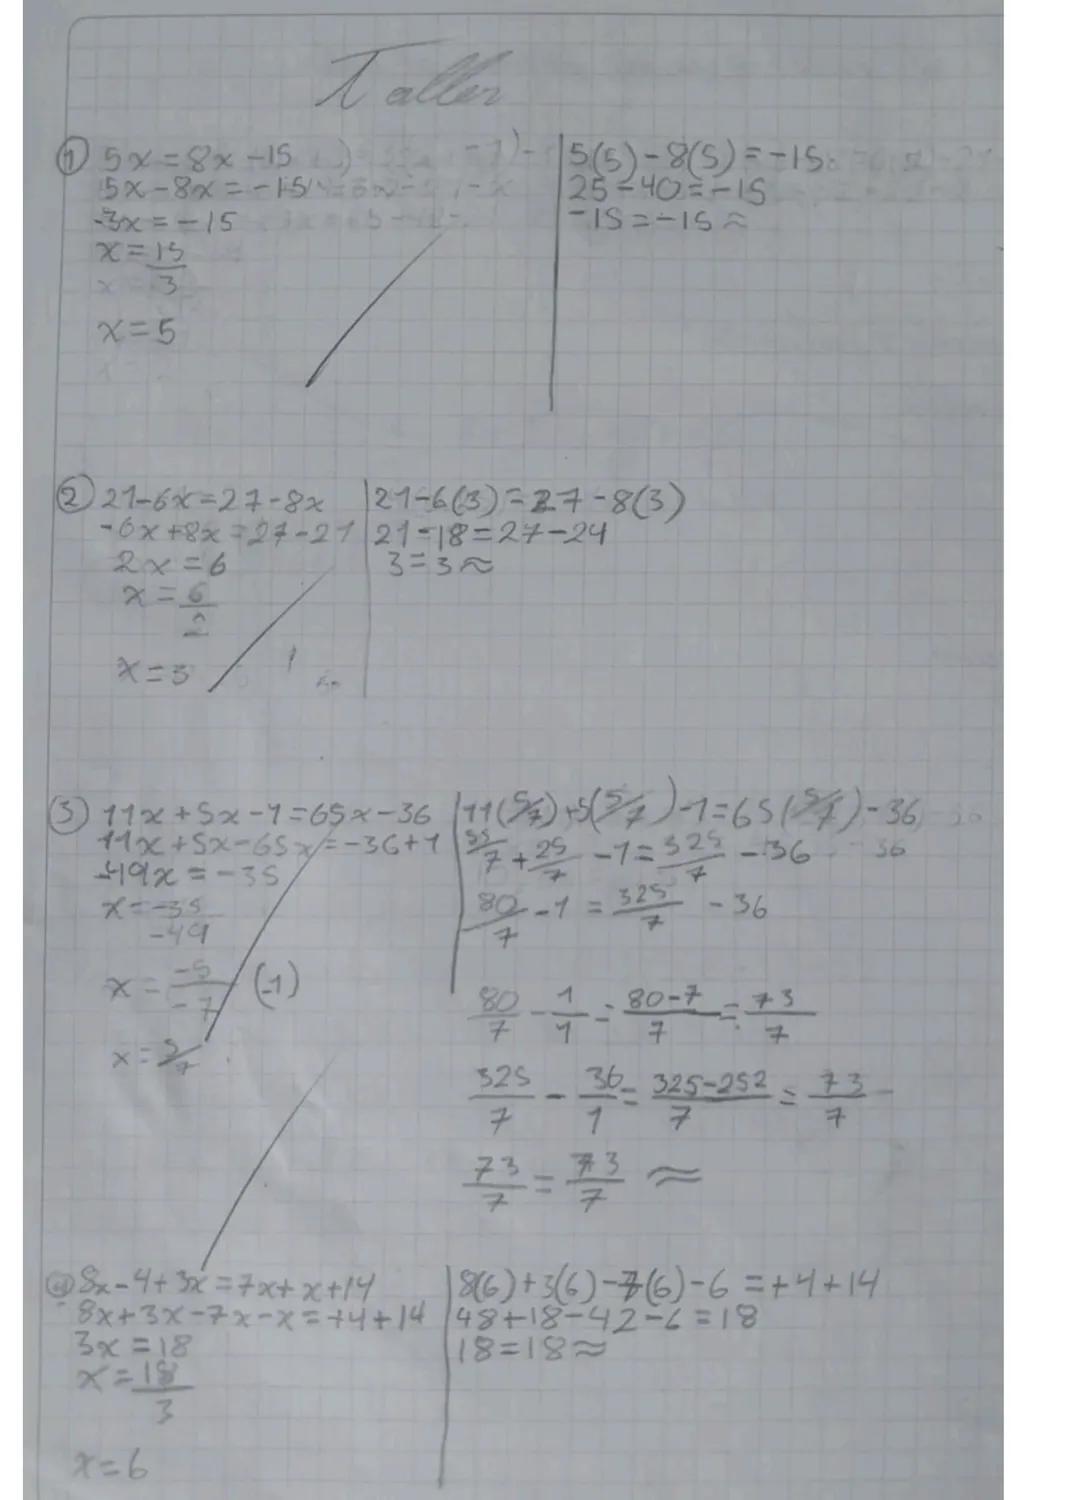 Taller
1) 5x = 8x - 15
5x - 8x = -15
-3x = -15
x = 15/3
x = 5
5(5) - 8(5) = -15
25 - 40 = -15
-15 = -15 ≈
2) 21 - 6x = 27 - 8x
-6x + 8x = 27 - 21
2x = 6
x = 6/2
x = 3
21 - 6(3) = 27 - 8(3)
21 - 18 = 27 - 24
3 = 3 ≈
3) 11x + 5x - 1 = 65x - 36
11x + 5x - 65x = -36 + 1
-49x = -35
x = -35/-49
x = -5/-7 (-1)
x = 5/7
11(5/7) + 5(5/7) - 1 = 65(5/7) - 36
55/7 + 25/7 - 1 = 325/7 - 36
80/7 - 1 = 325/7 - 36
80/7 - 1/1 = 80-7/7 = 73/7
325/7 - 36/1 = 325-252/7 = 73/7
73/7 = 73/7 ≈
4) 8x - 4 + 3x = 7x + x + 14
8x + 3x - 7x - x = +4 + 14
3x = 18
x = 18/3
x = 6
8(6) + 3(6) - 7(6) - 6 = +4 + 14
48 + 18 - 42 - 6 = 18
18 = 18 ≈